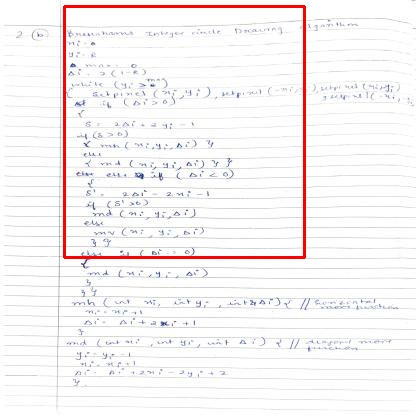 2 (b) Bresenhams Integer circle Drawing algorithm
xi = 0
yi = R
max = 0
Δi = 2(1-R)
while (yi ≥ max)
{ Setpixel (xi, yi), setpixel (-xi, ), setpixel (xi, yi)
setpixel (-xi,
if (Δi > 0)
{
δ = 2Δi + 2yi - 1
if (δ > 0)
{ mh (xi, yi, Δi) }
else
{ md (xi, yi, Δi) } }
else if (Δi < 0)
{
δ' = 2Δi - 2xi - 1
if (δ' > 0)
md (xi, yi, Δi)
else
mv (xi, yi, Δi)
} }
else if (Δi == 0)
{
md (xi, yi, Δi)
}
} }
mh (int xi, int yi, int Δi) { // horizontal
move function
xi = xi + 1
Δi = Δi + 2xi + 1
}
md (int xi, int yi, int Δi) { // diagonal move
function
yi = yi - 1
xi = xi + 1
Δi = Δi + 2xi - 2yi + 2
}